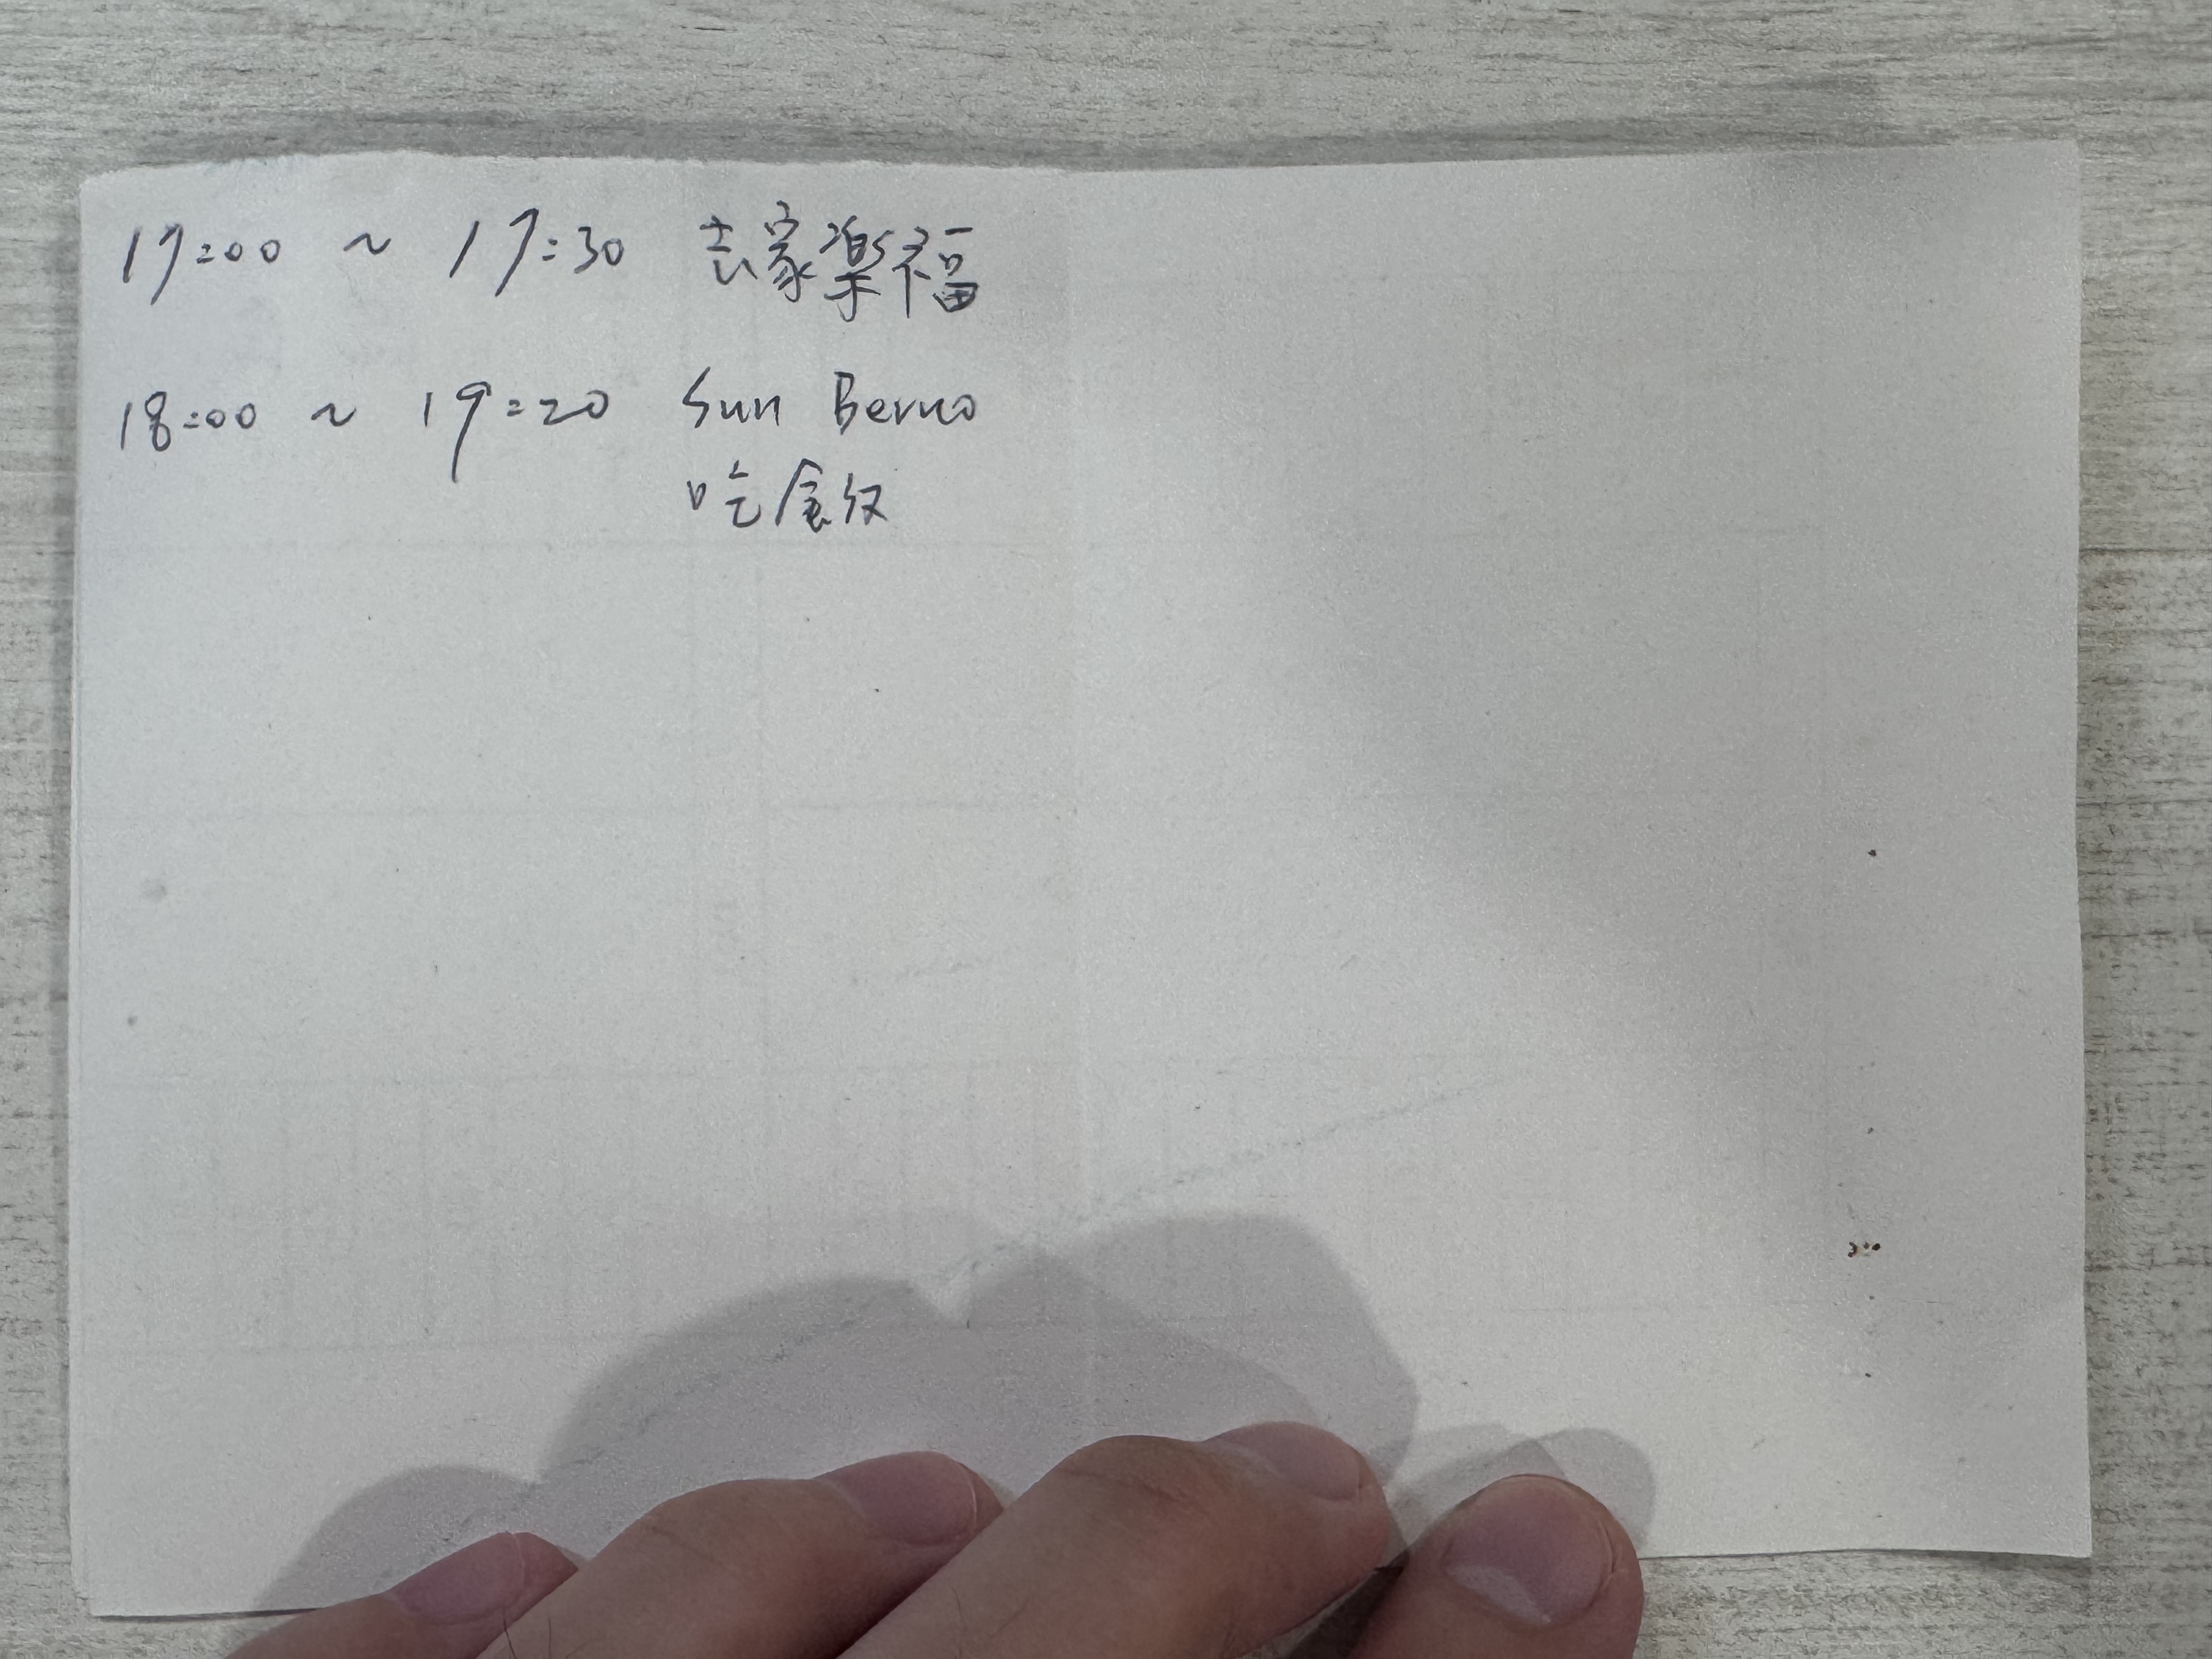 17:00 ~ 17:30 去家樂福
18:00 ~ 19:20 Sun Berno
吃飯